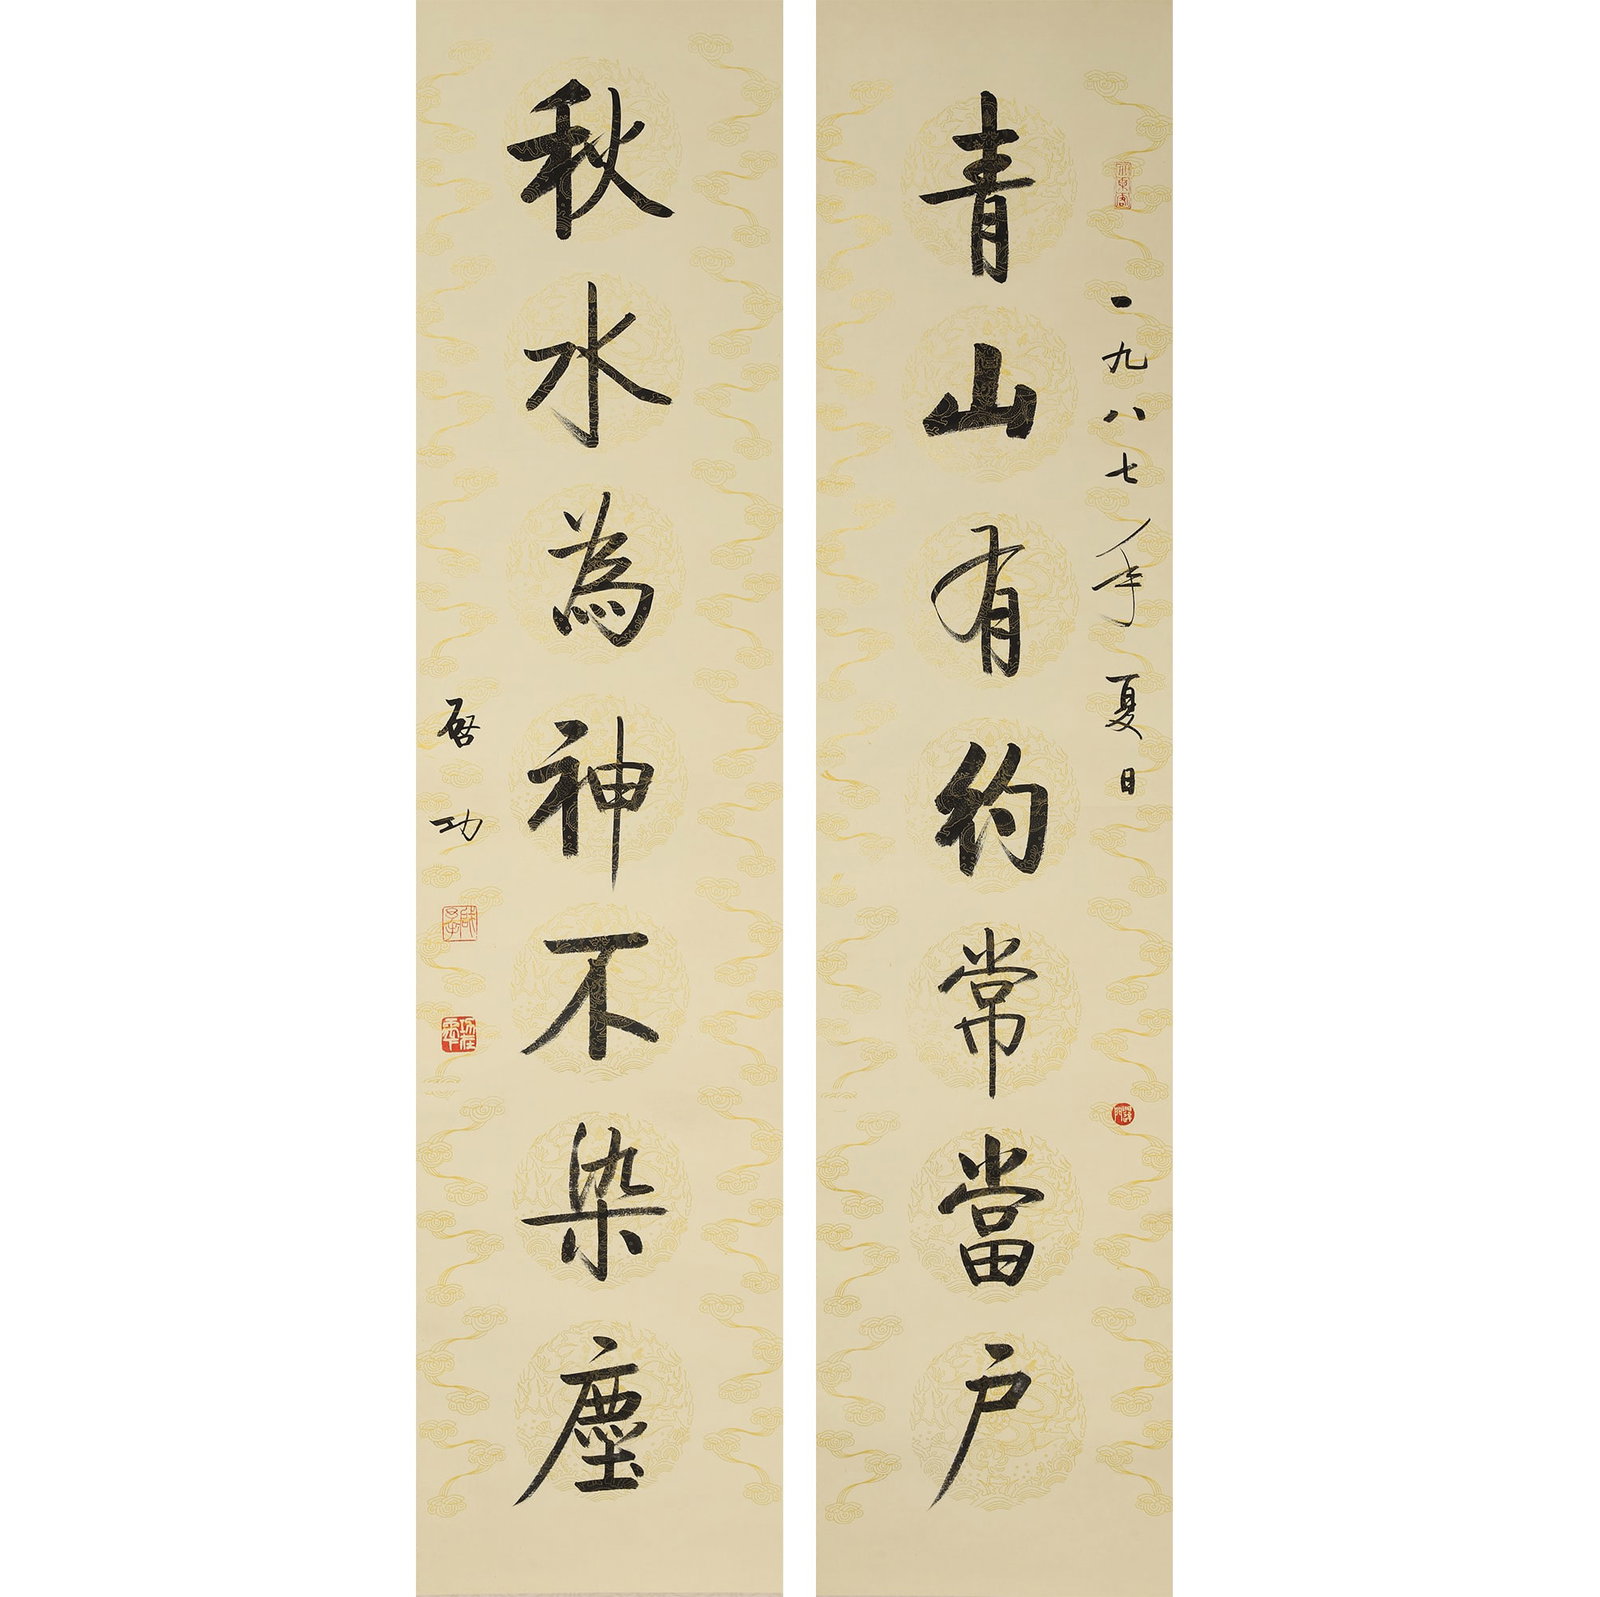 一九八七年夏日
青山有約常當户
秋水為神不染塵
啓功